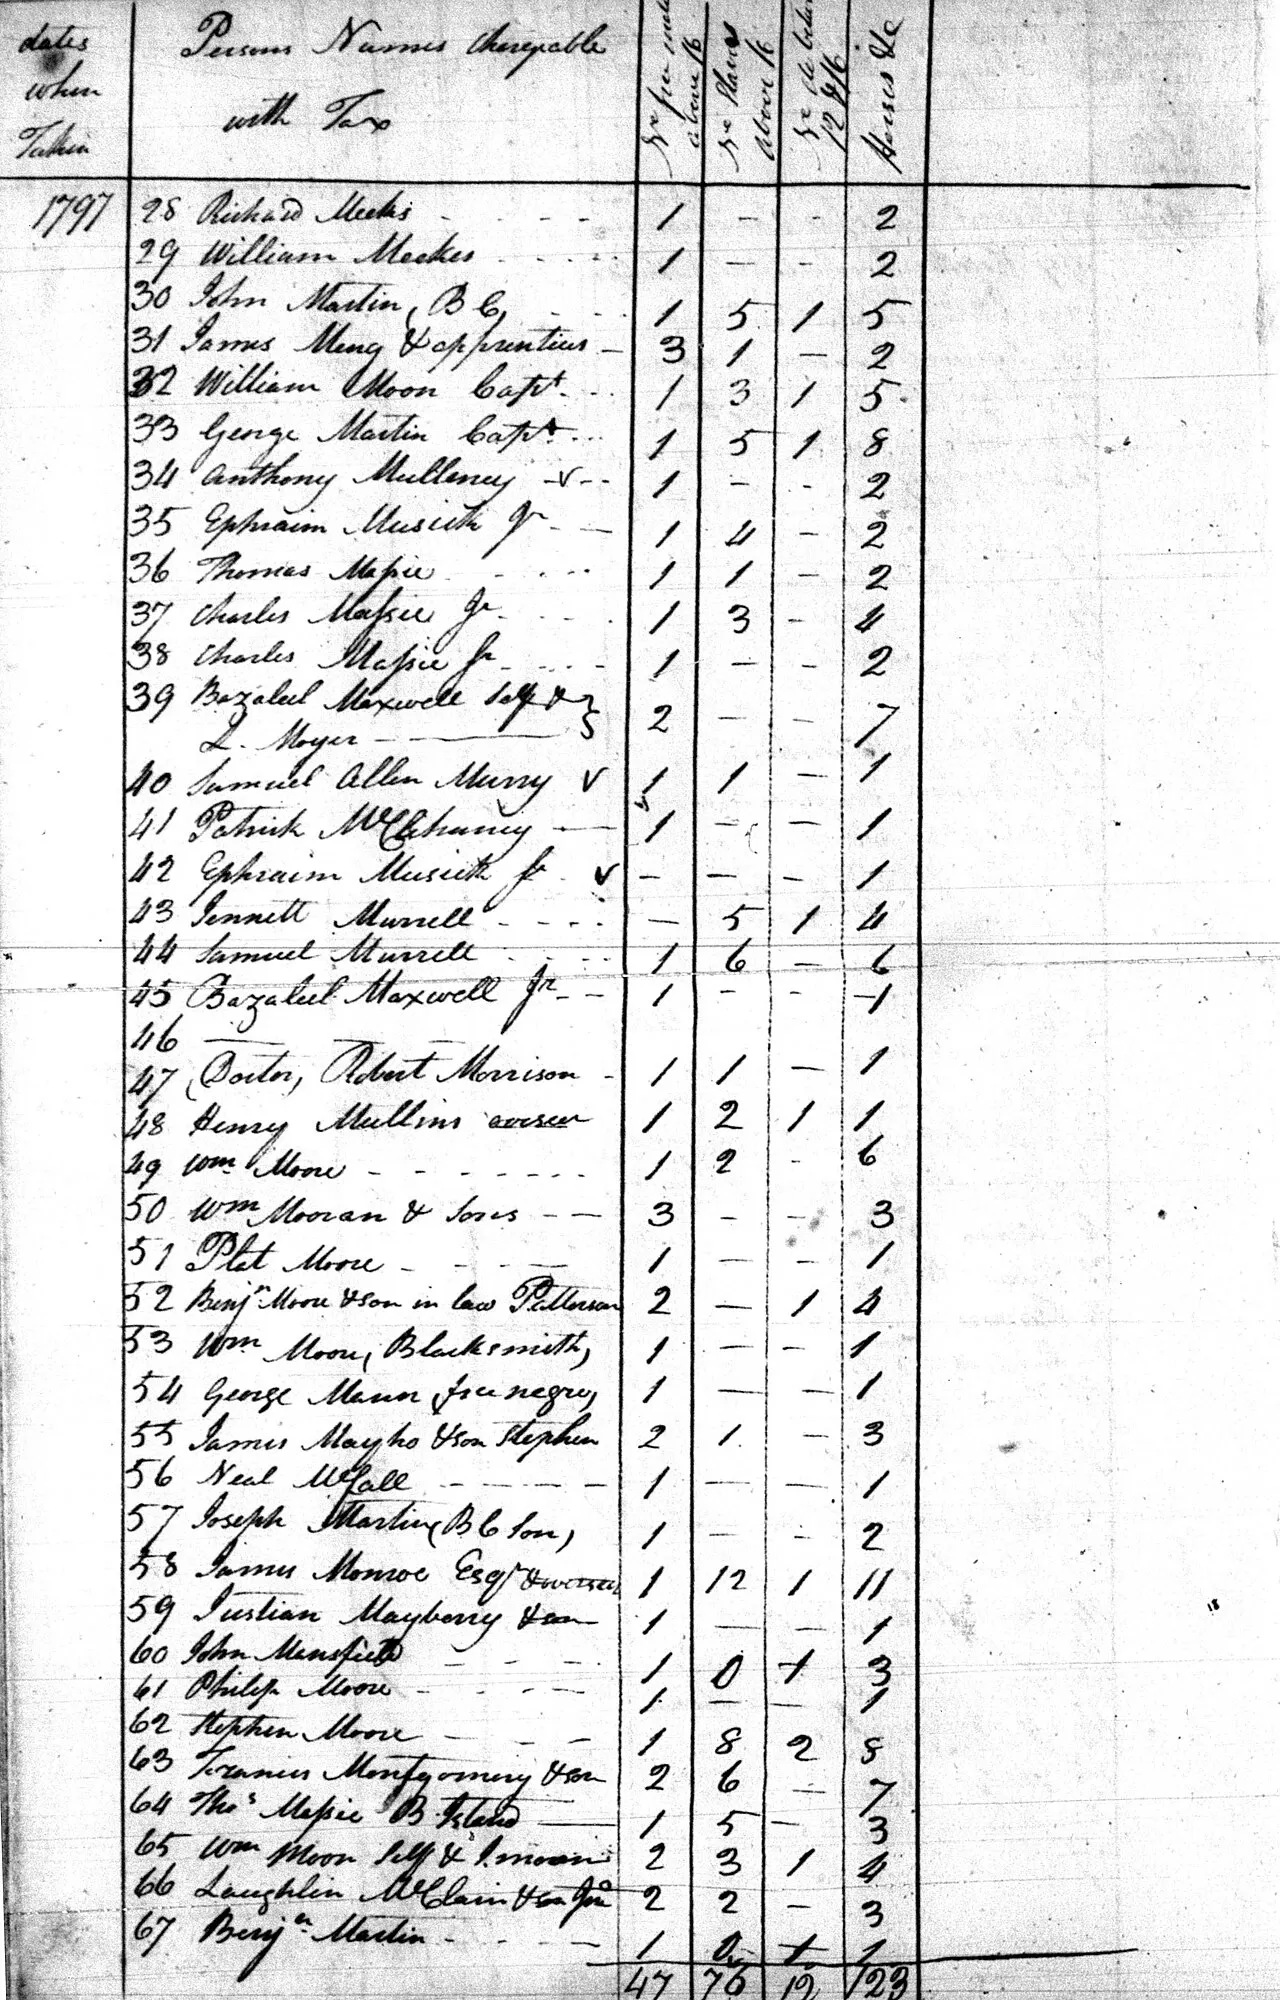 dates when Taken | Persons Names chargeable with Tax | No free male above 16 | No Slaves above 16 | No do betw 12 & 16 | Horses &c
1797 28 Richard Meeks - - - - 1 - - 2
29 William Meekes - - - - 1 - - 2
30 John Martin (B C) - - 1 5 1 5
31 James Meng & apprentices - 3 1 - 2
32 William Moon Capt. - - 1 3 1 5
33 George Martin Capt. - - 1 5 1 8
34 Anthony Mulleney - v - - 1 - - 2
35 Ephraim Musick Jr - - 1 4 - 2
36 Thomas Massie - - - - 1 1 - 2
37 Charles Massie Jr - - - - 1 3 - 4
38 Charles Massie Jr - - - - 1 - - 2
39 Bazaleel Maxwell Self & }
L. Moyer - - } 2 - - 7
40 Samuel Allen Murry v 1 1 - 1
41 Patrick McChhaney - 1 - - 1
42 Ephraim Musick Jr - v - - - 1
43 Jennett Murrell - - - - - 5 1 4
44 Samuel Murrell - - - - 1 6 - 6
45 Bazaleel Maxwell Jr - - 1 - - 1
46 - - -
47 (Doctor) Robert Morrison - 1 1 - 1
48 Henry Mullins overseer 1 2 1 1
49 Wm Moore - - - - - - 1 2 - 6
50 Wm Mooran & Sons - - 3 - - 3
51 Plat Moore - - - - 1 - - 1
52 Benjn Moore & son in law Patterson 2 - 1 4
53 Wm Moore (Blacksmith) 1 - - 1
54 George Mann (free negro) 1 - - 1
55 James Mayho & son Stephen 2 1 - 3
56 Neal McCall - - - - 1 - - 1
57 Joseph Martin (B C Son) 1 - - 2
58 James Monroe Esqr & overseer 1 12 1 11
59 Justian Mayberry & son 1 - - 1
60 John Mansfield - - - - 1 0 1 3
61 Philip Moore - - - - 1 - - 1
62 Stephen Moore - - - 1 8 2 8
63 Francis Montgomery & son 2 6 - 7
64 Thos Massie B. Island - 1 5 - 3
65 Wm Moon Self & J. moon 2 3 1 4
66 Laughlin McClain & son Jno 2 2 - 3
67 Benjn Martin - - - - 1 0 1 1
47 76 12 123